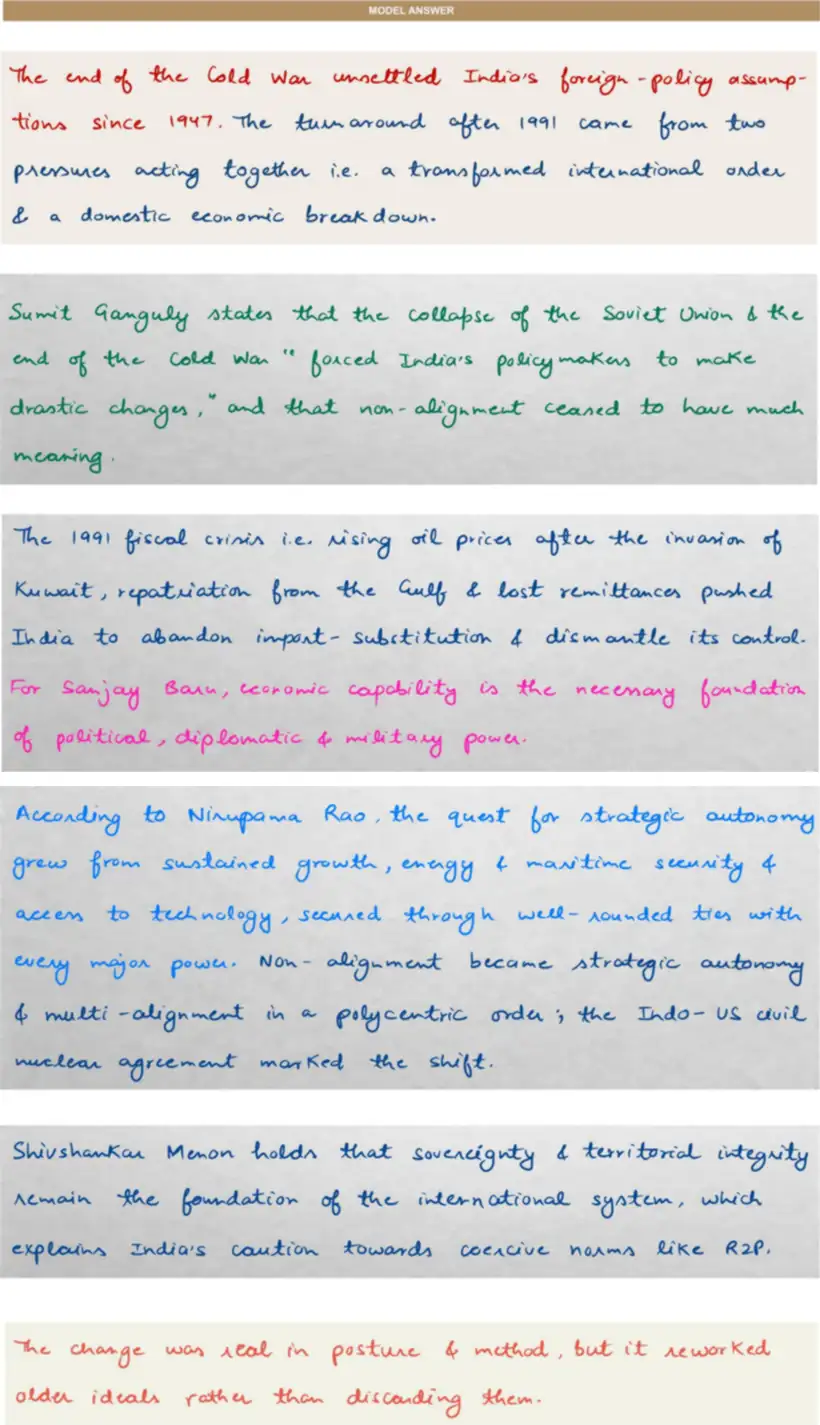 MODEL ANSWER
The end of the Cold War unsettled India's foreign-policy assump-
tions since 1947. The turnaround after 1991 came from two
pressures acting together i.e. a transformed international order
& a domestic economic breakdown.
Sumit Ganguly states that the collapse of the Soviet Union & the
end of the Cold War "forced India's policymakers to make
drastic changes," and that non-alignment ceased to have much
meaning.
The 1991 fiscal crisis i.e. rising oil prices after the invasion of
Kuwait, repatriation from the Gulf & lost remittances pushed
India to abandon import-substitution & dismantle its control.
For Sanjay Baru, economic capability is the necessary foundation
of political, diplomatic & military power.
According to Nirupama Rao, the quest for strategic autonomy
grew from sustained growth, energy & maritime security &
access to technology, secured through well-rounded ties with
every major power. Non-alignment became strategic autonomy
& multi-alignment in a polycentric order; the Indo-US civil
nuclear agreement marked the shift.
Shivshankar Menon holds that sovereignty & territorial integrity
remain the foundation of the international system, which
explains India's caution towards coercive norms like R2P.
The change was real in posture & method, but it reworked
older ideals rather than discarding them.